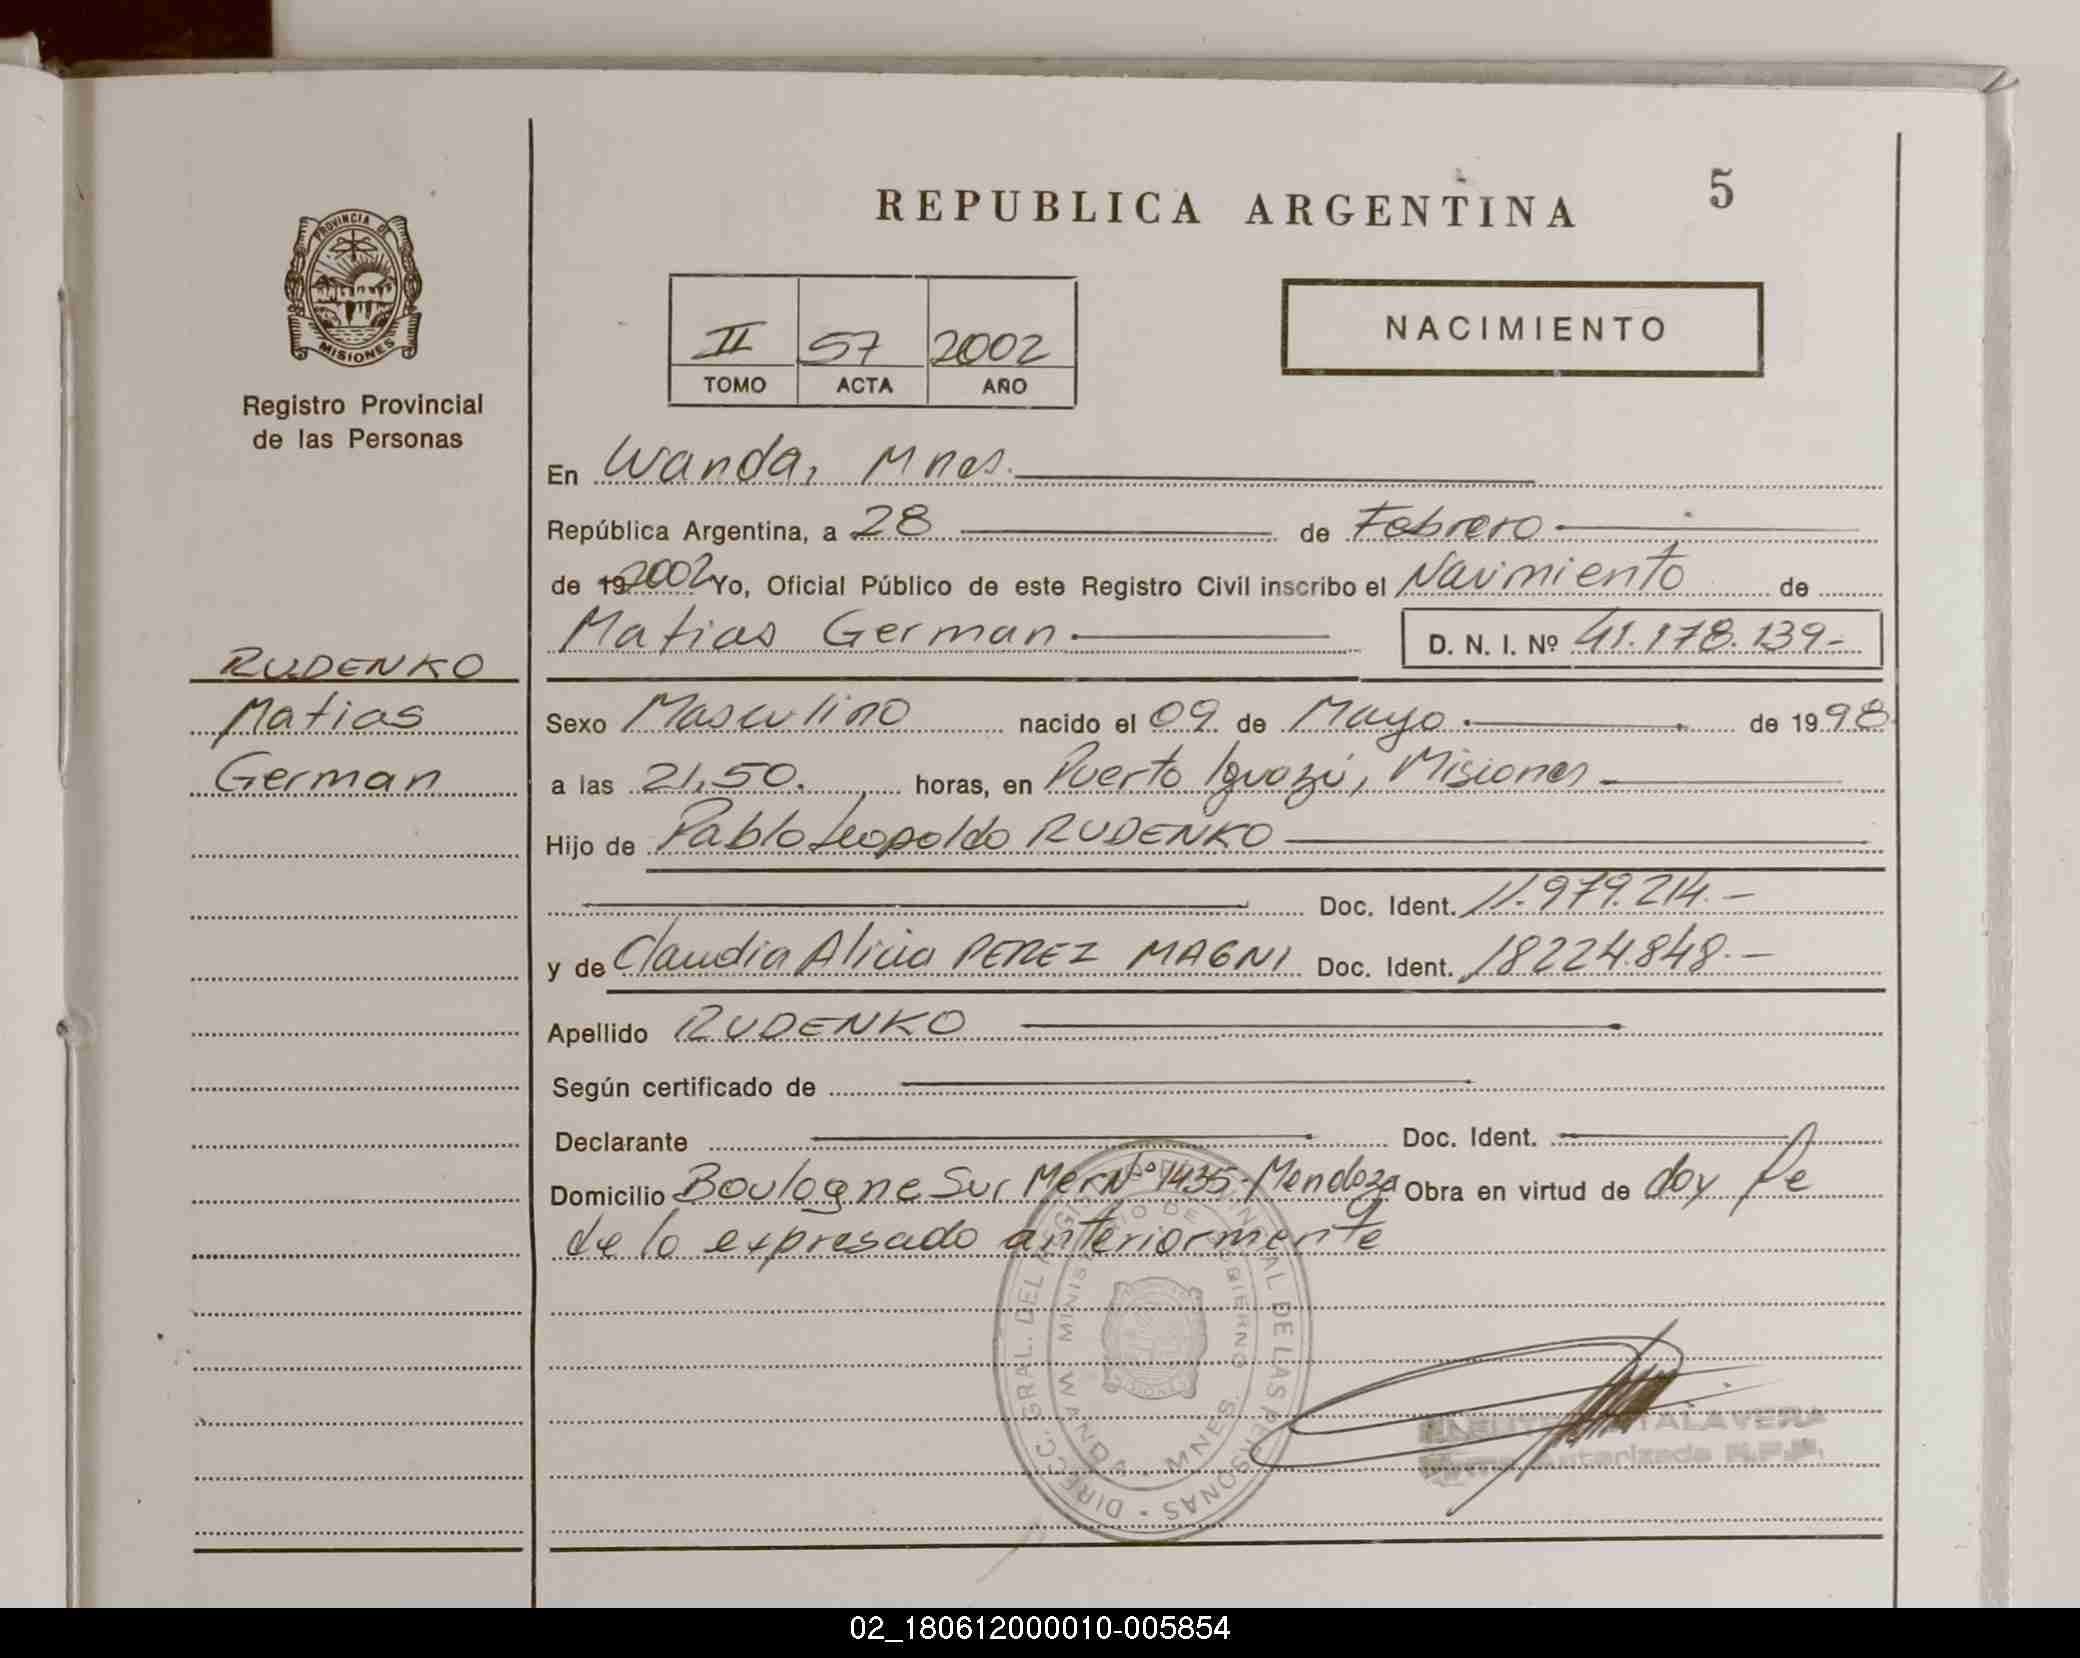 REPUBLICA ARGENTINA
5
PROVINCIA DE
MISIONES
Registro Provincial
de las Personas
II 57 2002
TOMO ACTA AÑO
NACIMIENTO
En Wanda, Mnes.
República Argentina, a 28 de Febrero
de 19 2002 Yo, Oficial Público de este Registro Civil inscribo el Nacimiento de
Matias German D. N. I. Nº 41.178.139-
RUDENKO
Matias
German
Sexo Masculino nacido el 09 de Mayo de 1998.
a las 21,50. horas, en Puerto Iguazú, Misiones
Hijo de Pablo Leopoldo RUDENKO
Doc. Ident. 11.979.214.-
y de Claudia Alicia PEREZ MAGNI Doc. Ident. 18224.848.-
Apellido RUDENKO
Según certificado de
Declarante Doc. Ident.
Domicilio Boulogne Sur Mer Nº 1435-Mendoza Obra en virtud de doy fe
de lo expresado anteriormente
DIRECC. GRAL. DEL REGISTRO PROVINCIAL DE LAS PERSONAS
MINISTERIO DE GOBIERNO
WANDA - MNES.
TALAVERA
Firma Autorizada R.P.P.
02_180612000010-005854